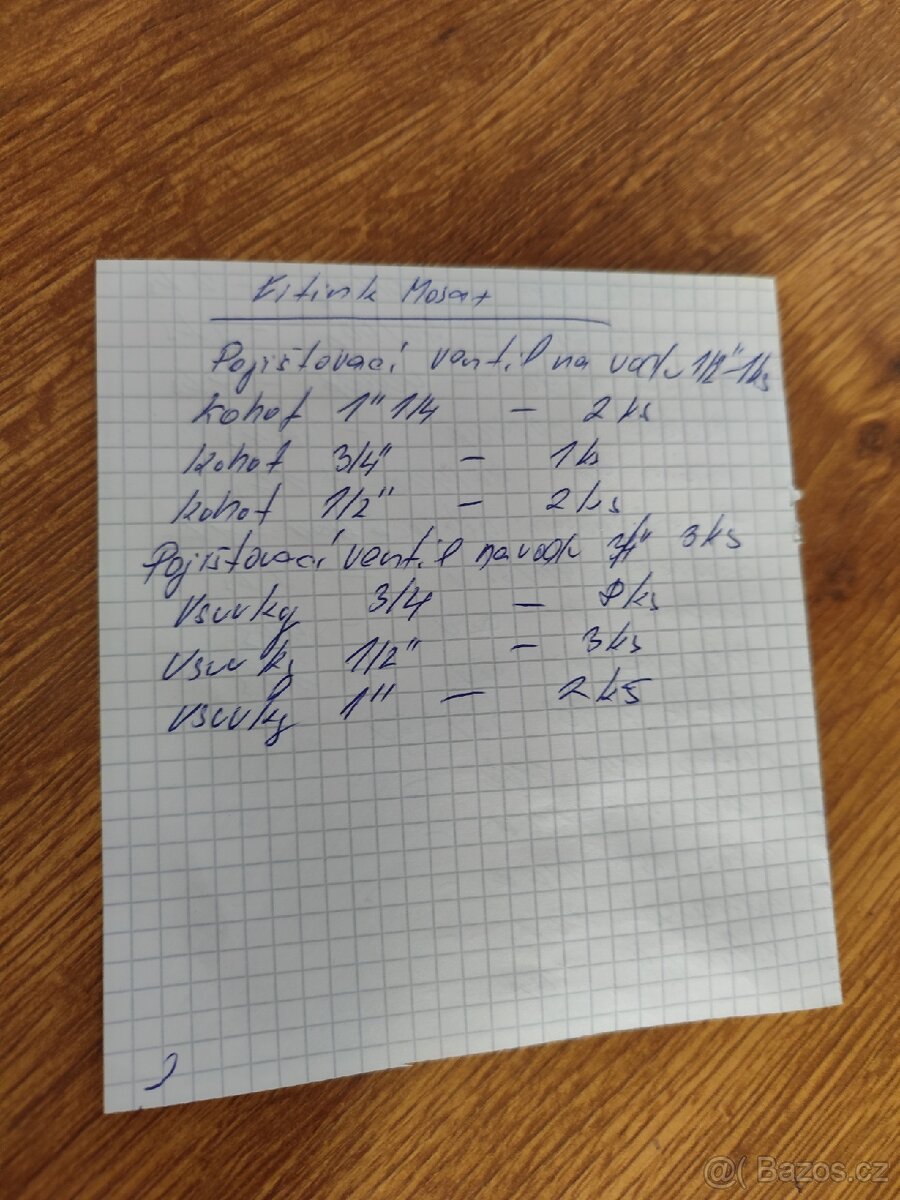 Fitink Mosaz
Pojišťovací ventil na vodu 1/2" - 1ks
Kohot 1" 1/4 - 2 ks
Kohot 3/4" - 1 ks
Kohot 1/2" - 2 ks
Pojišťovací ventil na vodu 3/4" 3ks
Vsuvky 3/4 - ks
Vsuvky 1/2" - 3ks
Vsuvky 1" - 2 ks
@( Bazos.cz